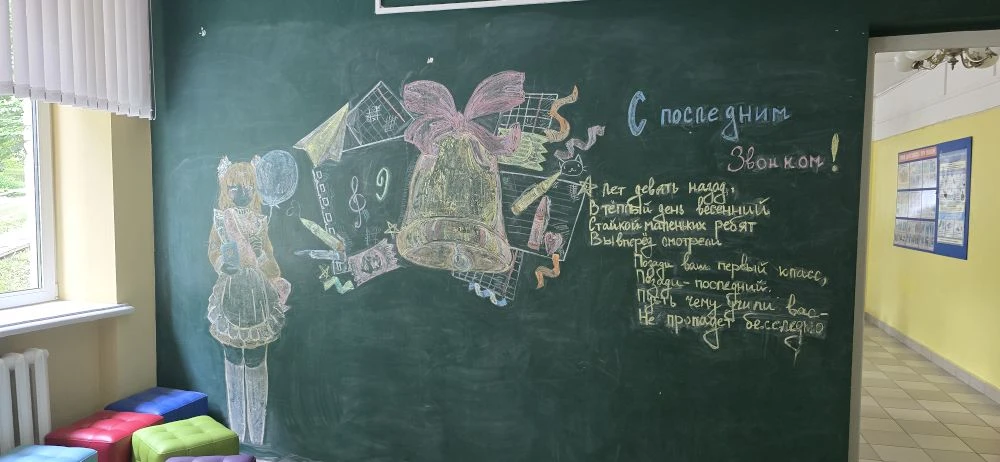 С последним
Звонком!
Лет девять назад,
В тёплый день весенний
Стайкой маленьких ребят
Вы вперёд смотрели
Позади ваш первый класс,
Позади - последний.
Пусть чему учили вас-
Не пропадёт бесследно